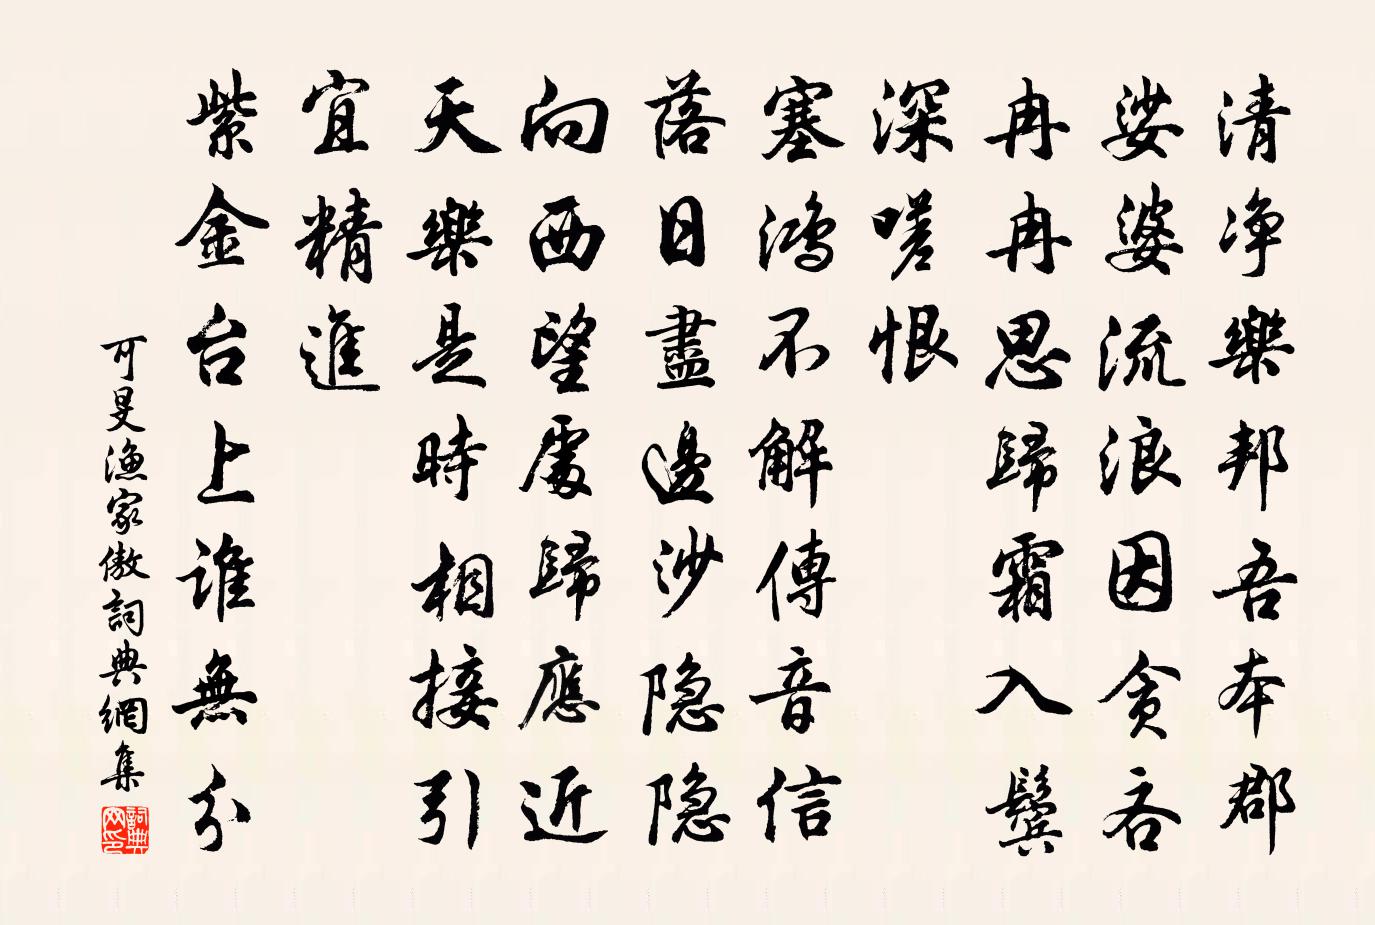 清净樂邦吾本郡
娑婆流浪因贪吝
冉冉思歸霜入鬓
深嗟恨
塞鴻不解傳音信
落日盡邊沙隐隐
向西望處歸應近
天樂是時相接引
宜精進
紫金台上誰無分
可旻漁家傲詞典網集
詞典网印